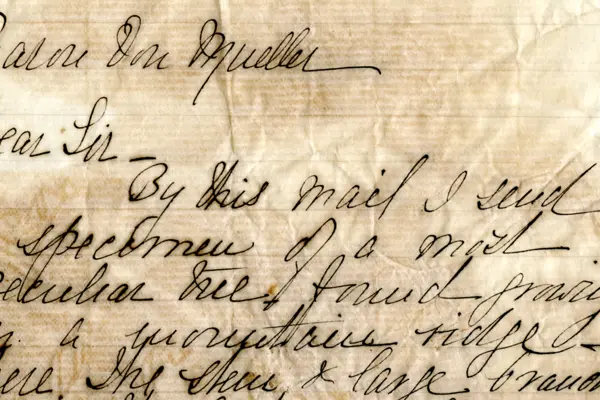 Baron Von Mueller
Dear Sir –
By this mail I send
specimen of a most
peculiar tree I found growing
on a mountain ridge –
here. The stem, & large branch